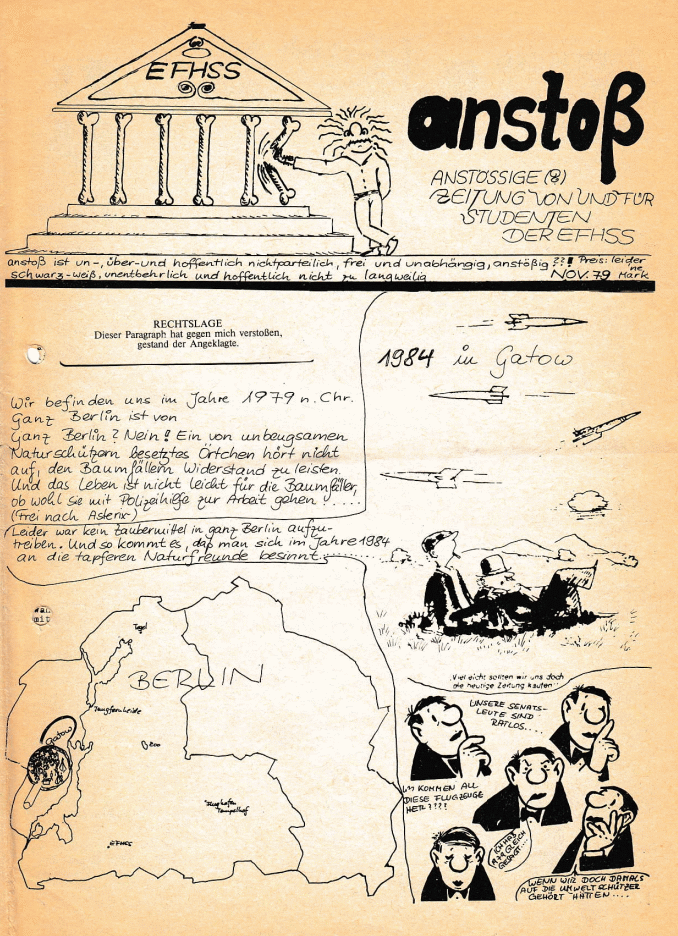 EFHSS
anstoß
ANSTÖSSIGE (?)
ZEITUNG VON UND FÜR
STUDENTEN
DER EFHSS
anstoß ist un-, über-und hoffentlich nichtparteilich, frei und unabhängig, anstößig??! Preis: leider
schwarz-weiß, unentbehrlich und hoffentlich nicht zu langweilig NOV. 79 ne Mark
RECHTSLAGE
Dieser Paragraph hat gegen mich verstoßen,
gestand der Angeklagte.
1984 in Gatow
Wir befinden uns im Jahre 1979 n. Chr.
Ganz Berlin ist von
Ganz Berlin? Nein! Ein von unbeugsamen
Naturschützern besetztes Örtchen hört nicht
auf, den Baumfällern Widerstand zu leisten.
Und das Leben ist nicht leicht für die Baumfäller,
ob wohl sie mit Polizeihilfe zur Arbeit gehen.....
(Frei nach Asterix)
Leider war kein Zaubermittel in ganz Berlin aufzu-
treiben. Und so kommt es, daß man sich im Jahre 1984
an die tapferen Naturfreunde besinnt..........
BERLIN
Tegel
Jungfernheide
Gatow
Zoo
Flughafen
Tempelhof
EFHSS
"Vielleicht sollten wir uns doch
die heutige Zeitung kaufen"
UNSERE SENATS-
LEUTE SIND
RATLOS....
KOMMEN ALL
DIESE FLUGZEUGE
HER????!
ICH HAB
GLEICH
GESAGT...
WENN WIR DOCH DAMALS
AUF DIE UMWELTSCHÜTZER
GEHÖRT HÄTTEN....